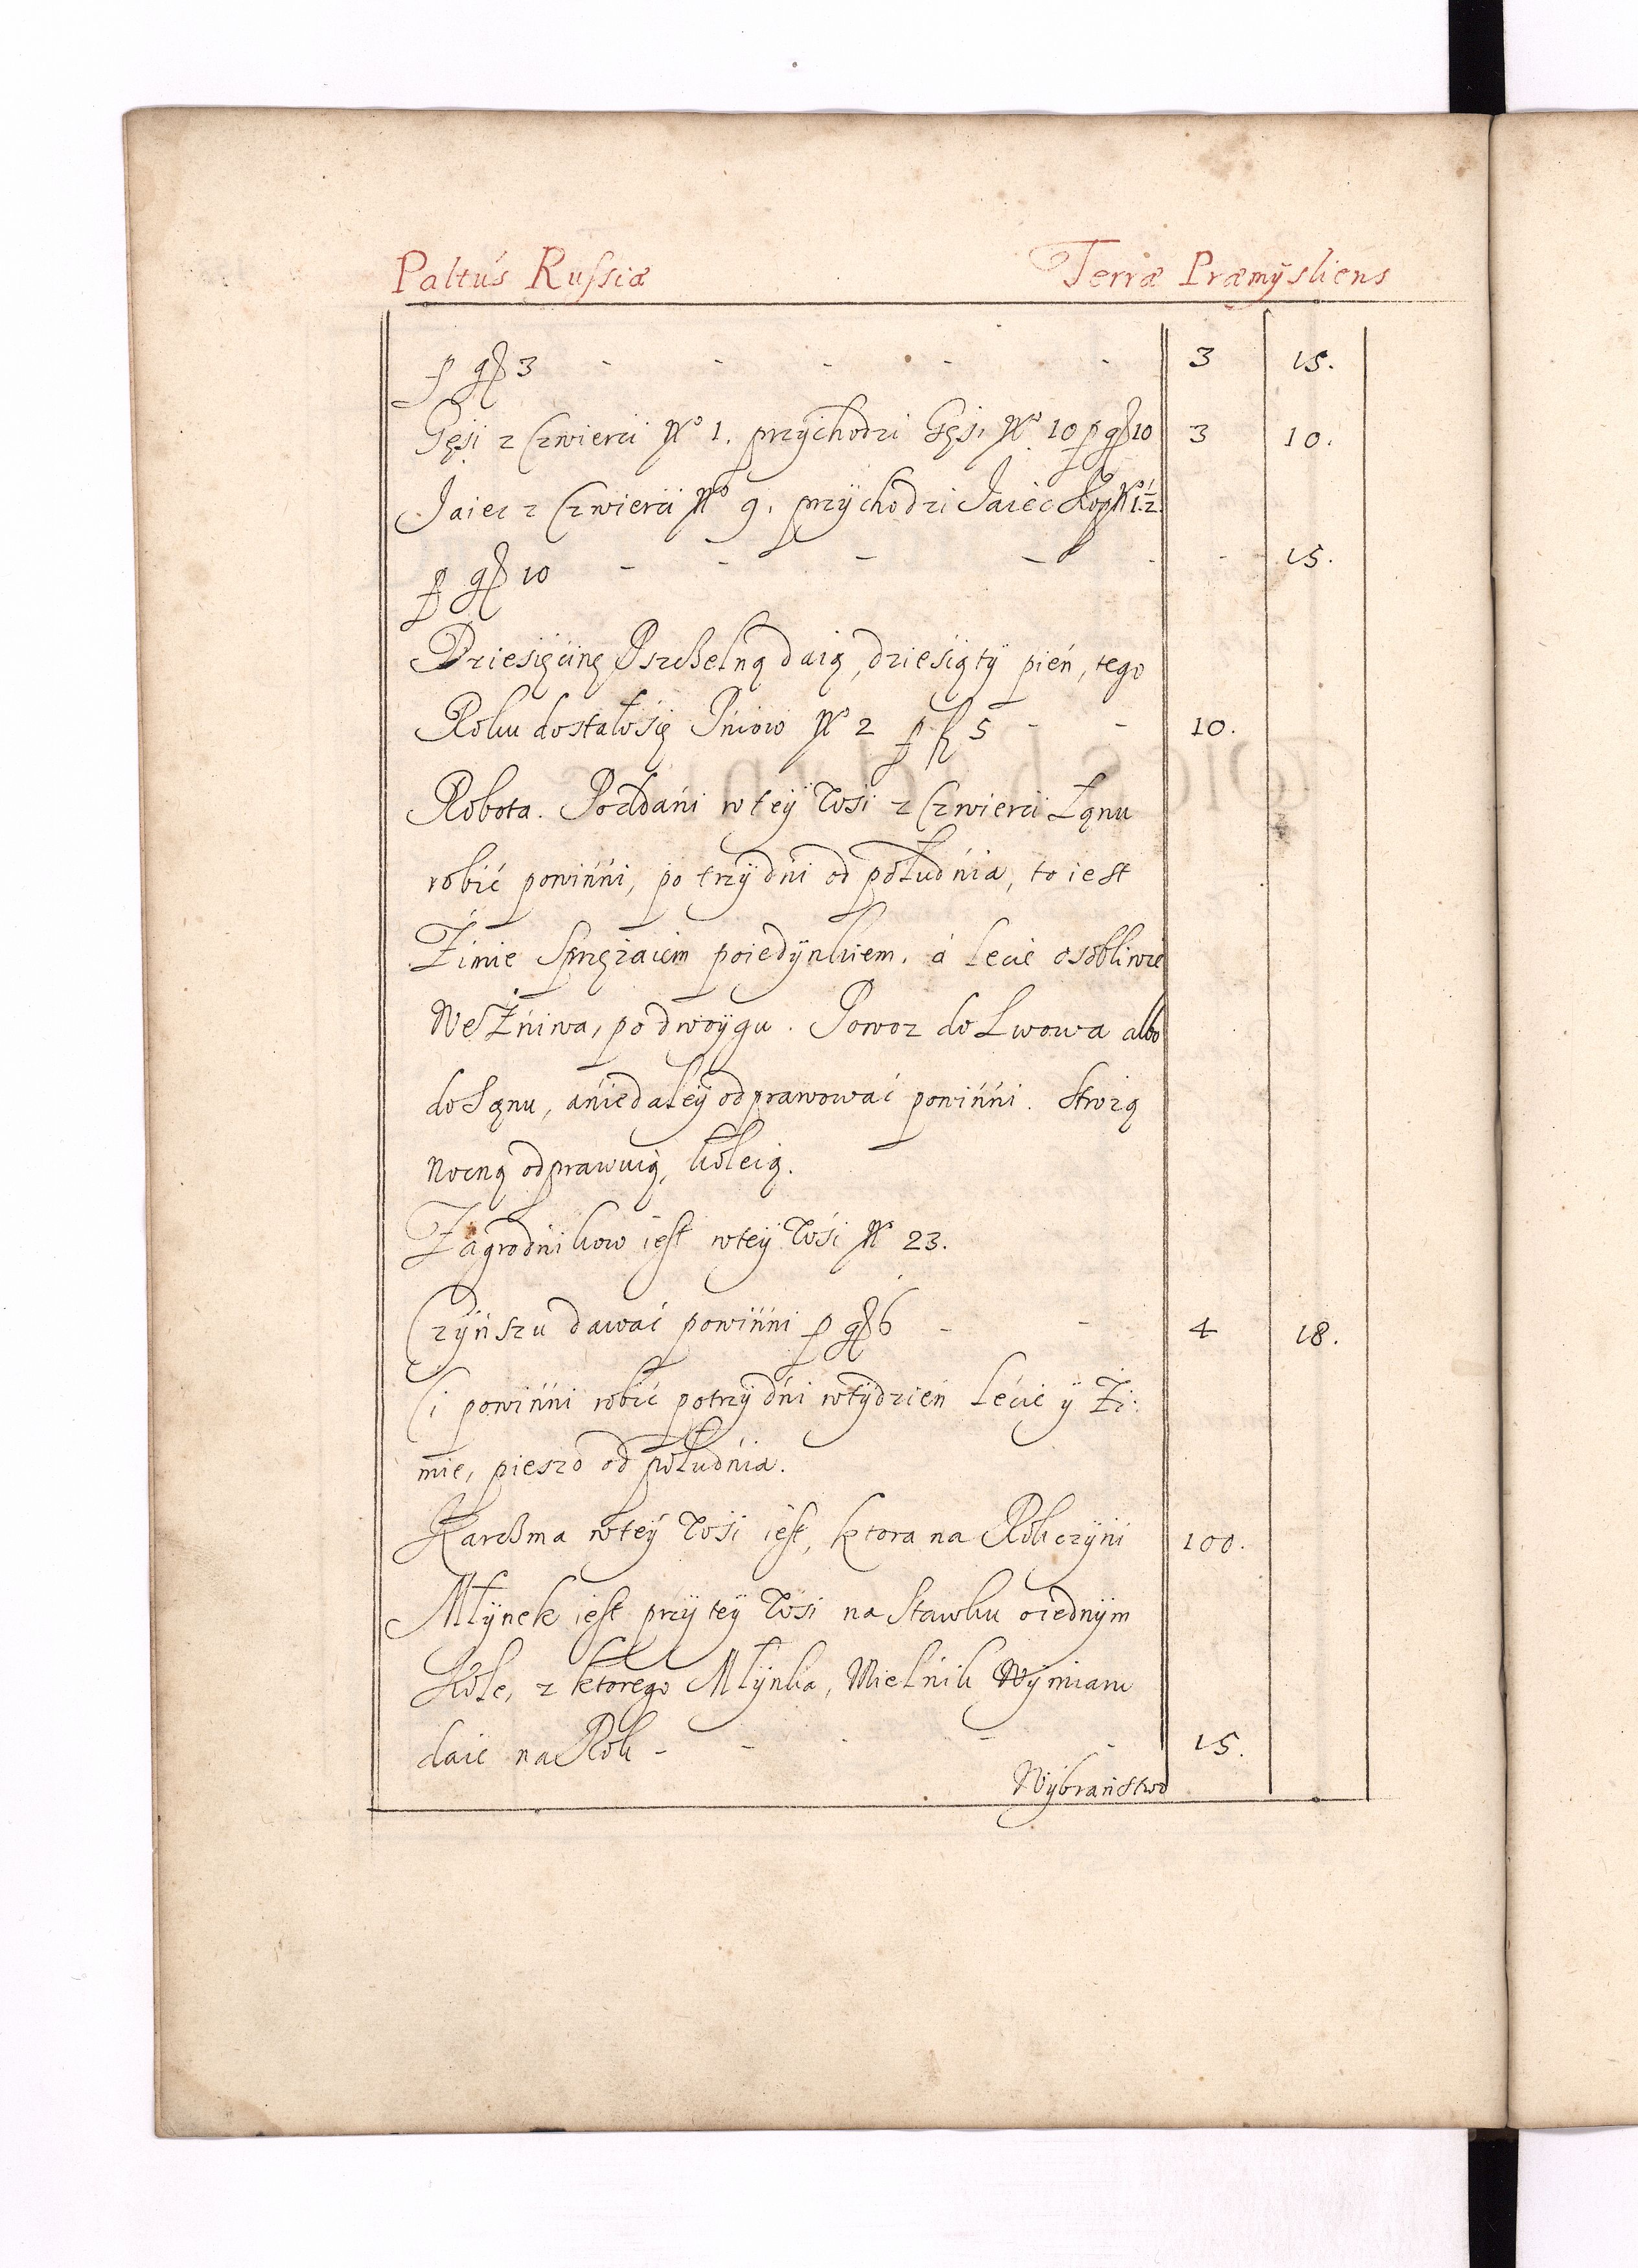 Paltus Russiæ Terræ Præmÿsliens
p gß 3 - - - - - 3 15.
Gęsi z Czwierci No 1. przÿchodzi Gęsi No 10 p gß 10 3 10.
Jaiec z Czwierci No 9. przÿchodzi Jaiec Kop No 1½
p gß 10 - - - - - - 15.
Dziesięcinę Pszczelną daią, dziesiąty pień, tego
Roku dostało się Pniow No 2 p fl 5 - - 10.
Robota. Poddani w teÿ Wsi z Czwierci Łanu
robić powinni, po trzÿ dni od południa, to iest
Zimie sprzężaiem poiedÿnkiem, á Lecie osobliwie
We Żniwa, po dwoÿgu. Powoz do Lwowa albo
do Sanu, a niedaleÿ odprawować powinni. Strożą
nocną odprawuią, koleią.
Zagrodnikow iest w teÿ Wsi No 23.
Czÿnszu dawać powinni p gß 6 - - 4 18.
Ci powinni robić po trzÿ dni w tÿdzień Lecie ÿ Zi:
mie, pieszo od południa.
Karczma w teÿ Wsi iest, ktora na Rok czÿni 100.
Młÿnek iest przÿ teÿ Wsi na Stawku o iednÿm
Kole, z ktorego Młÿnka, Mielnik Wÿmiaru
daie na Rok - - - - - 15.
Wÿbraństwo